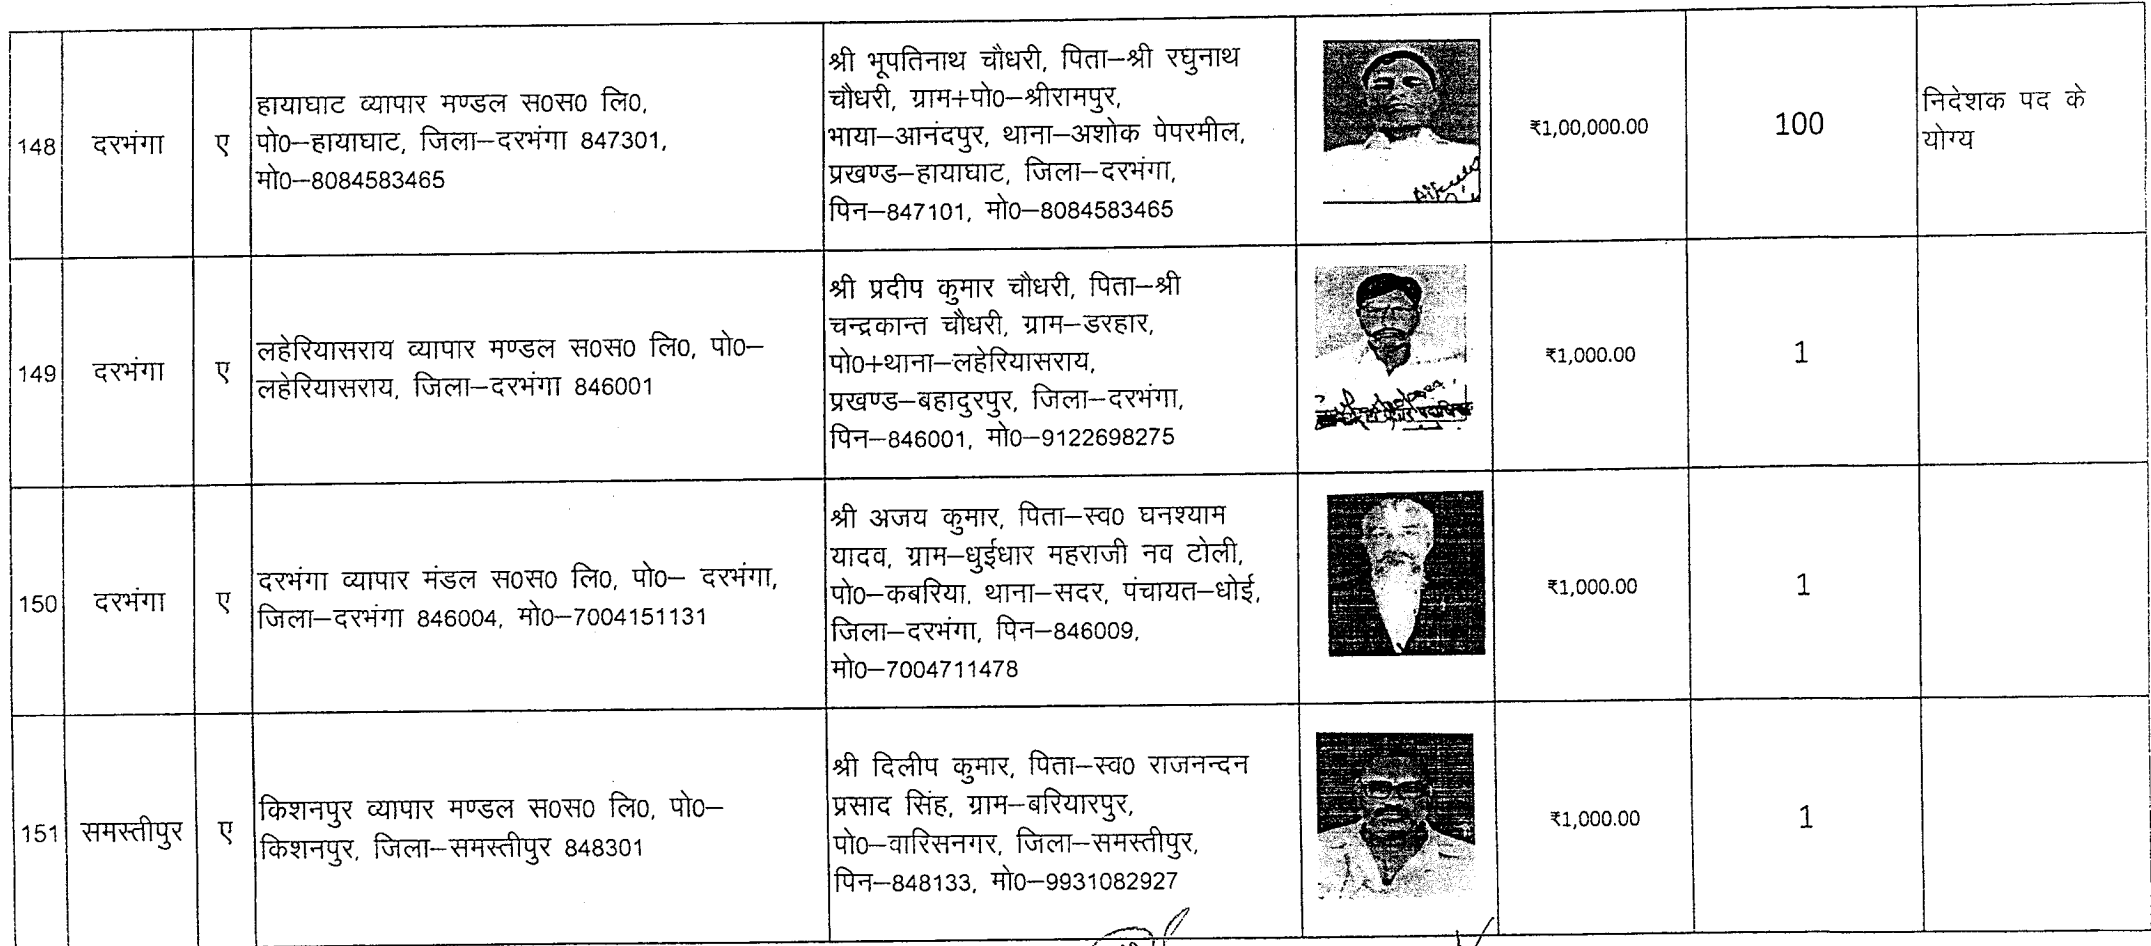 148
दरभंगा
ए
हायाघाट व्यापार मण्डल स0स0 लि0,
पो0–हायाघाट, जिला–दरभंगा 847301,
मो0–8084583465
श्री भूपतिनाथ चौधरी, पिता–श्री रघुनाथ
चौधरी, ग्राम+पो0–श्रीरामपुर,
भाया–आनंदपुर, थाना–अशोक पेपरमील,
प्रखण्ड–हायाघाट, जिला–दरभंगा,
पिन–847101, मो0–8084583465
₹1,00,000.00
100
निदेशक पद के
योग्य
149
दरभंगा
ए
लहेरियासराय व्यापार मण्डल स0स0 लि0, पो0–
लहेरियासराय, जिला–दरभंगा 846001
श्री प्रदीप कुमार चौधरी, पिता–श्री
चन्द्रकान्त चौधरी, ग्राम–डरहार,
पो0+थाना–लहेरियासराय,
प्रखण्ड–बहादुरपुर, जिला–दरभंगा,
पिन–846001, मो0–9122698275
₹1,000.00
1
150
दरभंगा
ए
दरभंगा व्यापार मंडल स0स0 लि0, पो0– दरभंगा,
जिला–दरभंगा 846004, मो0–7004151131
श्री अजय कुमार, पिता–स्व0 घनश्याम
यादव, ग्राम–धुईधार महराजी नव टोली,
पो0–कबरिया, थाना–सदर, पंचायत–धोई,
जिला–दरभंगा, पिन–846009,
मो0–7004711478
₹1,000.00
1
151
समस्तीपुर
ए
किशनपुर व्यापार मण्डल स0स0 लि0, पो0–
किशनपुर, जिला–समस्तीपुर 848301
श्री दिलीप कुमार, पिता–स्व0 राजनन्दन
प्रसाद सिंह, ग्राम–बरियारपुर,
पो0–वारिसनगर, जिला–समस्तीपुर,
पिन–848133, मो0–9931082927
₹1,000.00
1